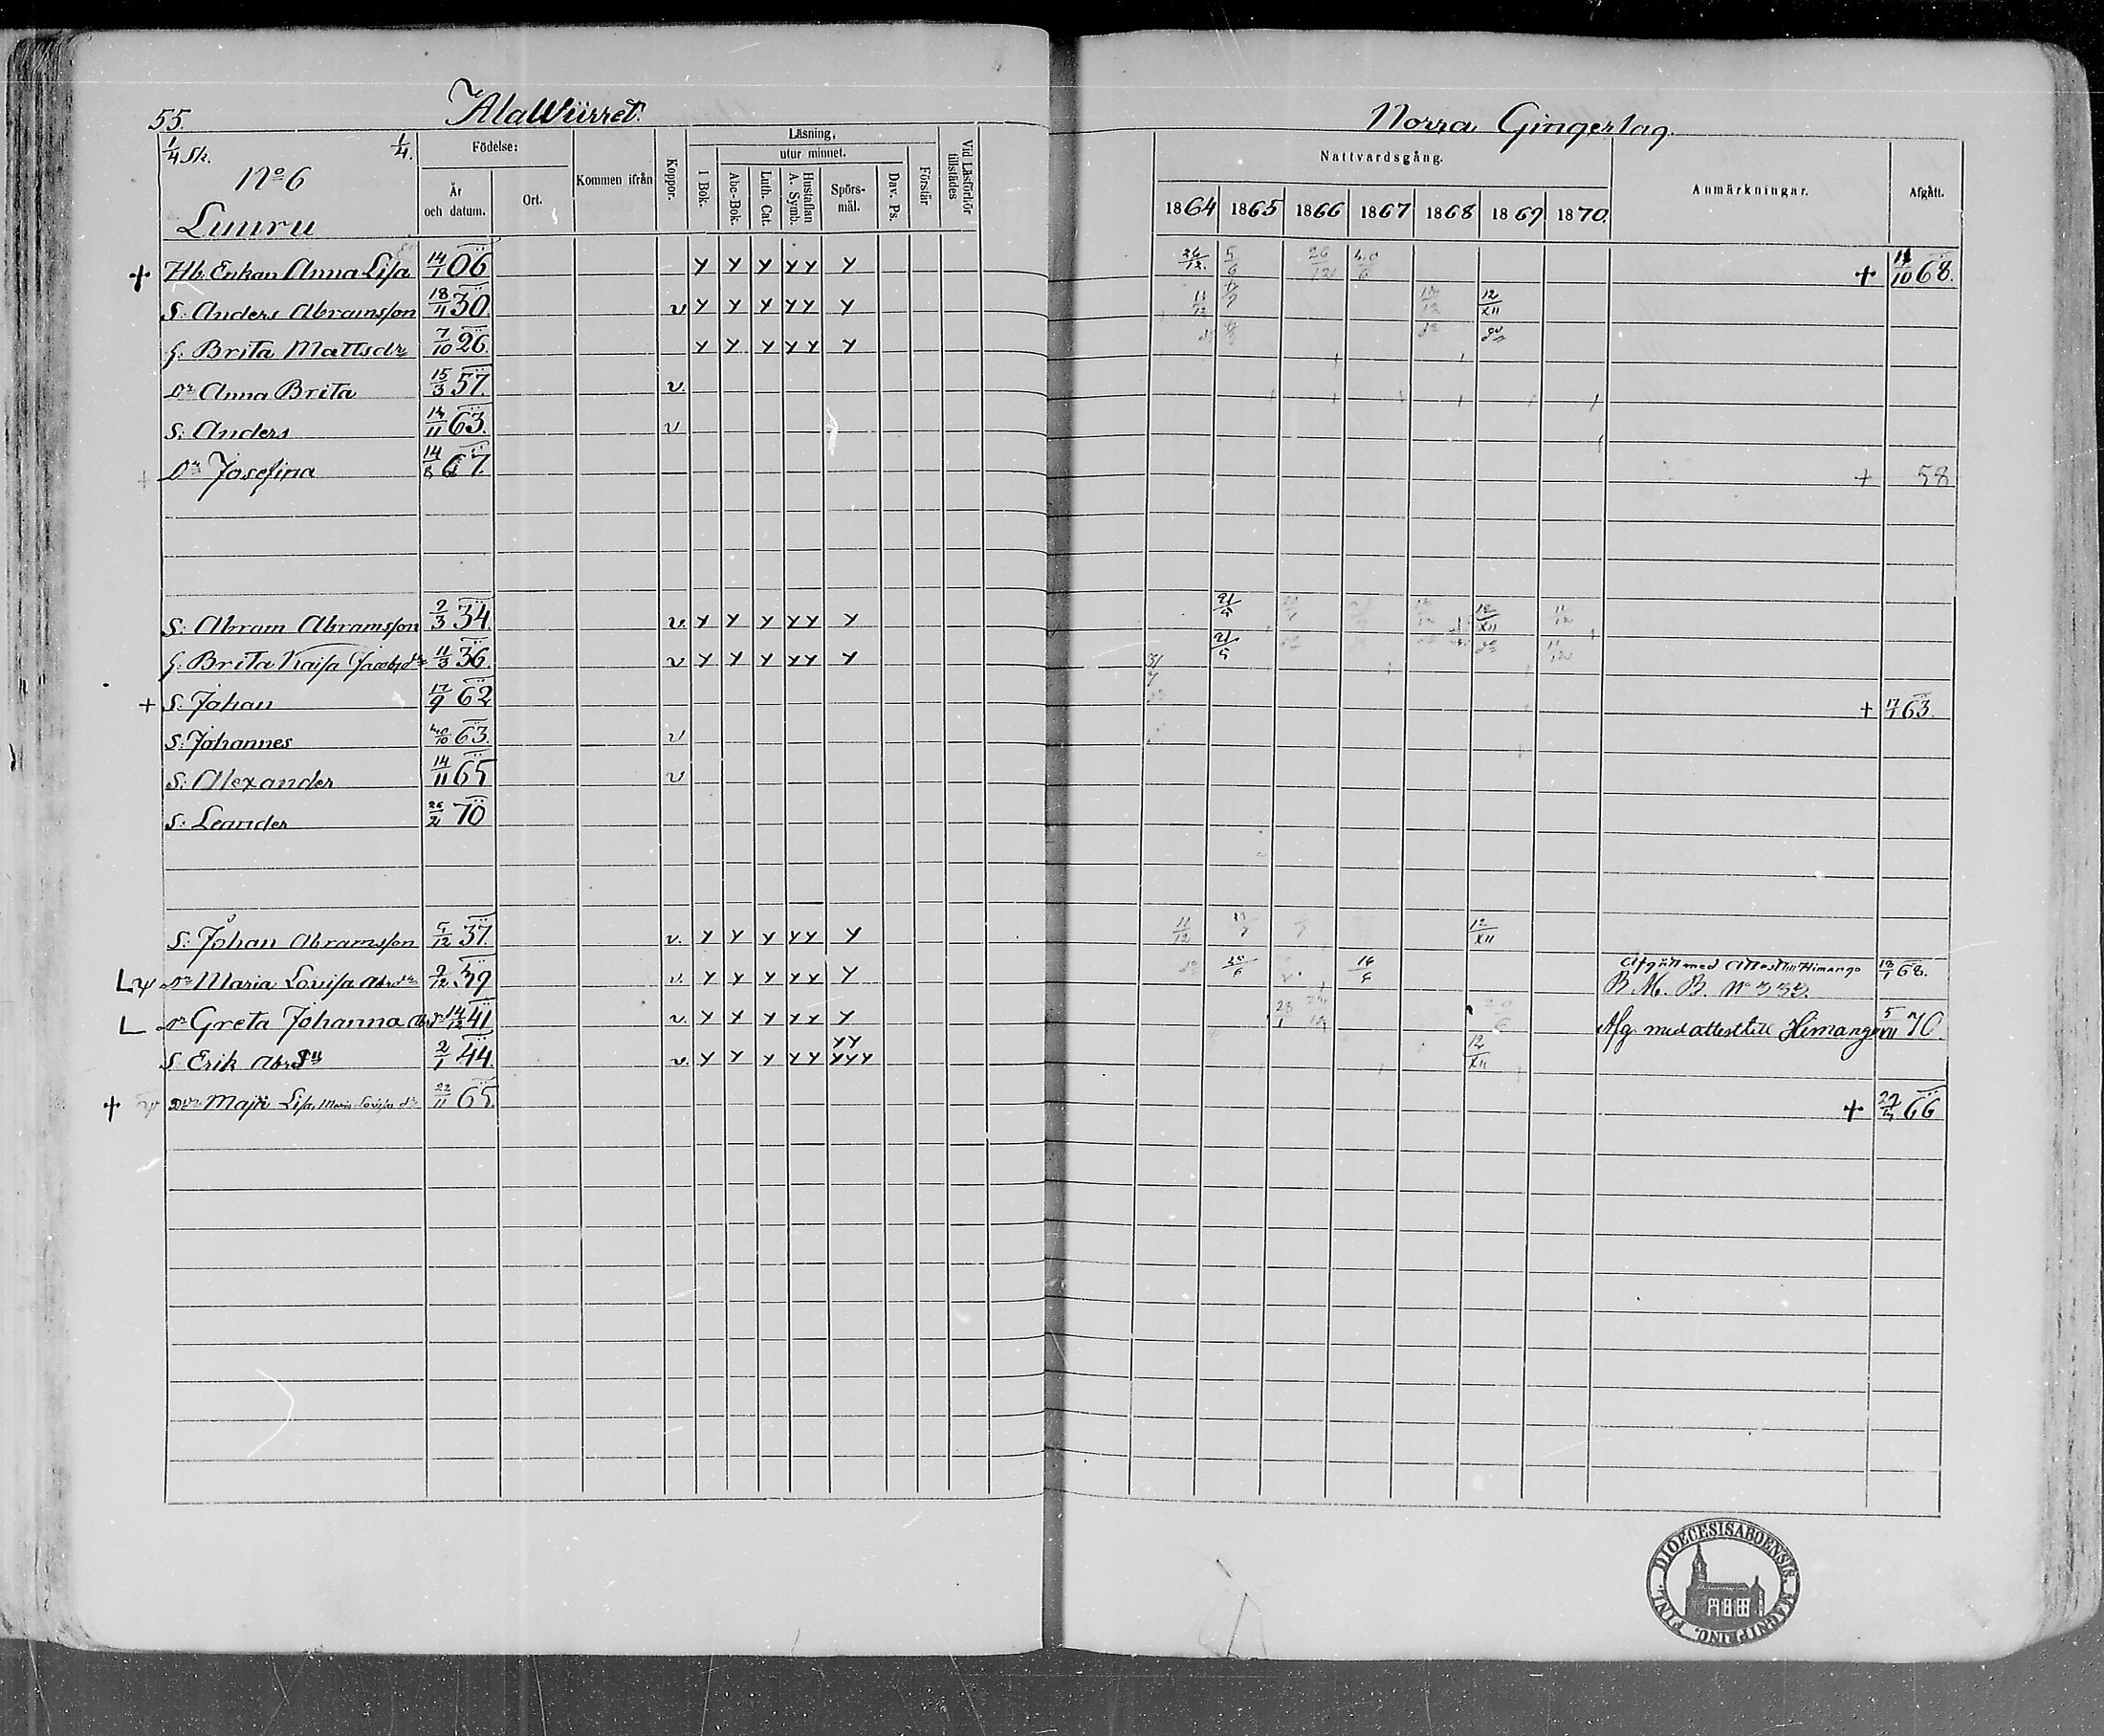 55. AlaWiirret. Norra Gingerlag.
1/4 Sk. 1/4.
No 6
Luuru
Födelse:
År och datum.
Ort.
Kommen ifrån
Koppor.
Läsning,
utur minnet.
I Bok.
Abc-Bok.
Luth. Cat.
Hustaflan A. Symb.
Spörsmål.
Dav. Ps.
Förstår
Vid Läsförhör tillstädes
Nattvardsgång.
1864 1865 1866 1867 1868 1869 1870.
Anmärkningar.
Afgått.
+ Hb. Enkan Anna Lisa 14/1 06 Y Y Y YY Y 26/12. 5/6 26/12 + 10 68.
S. Anders Abramsson 18/4 30. v Y Y Y YY Y 11/12 12/XII
h. Brita Mattsdr 7/10 26. Y Y Y YY Y
Dr Anna Brita 15/3 57. v.
S. Anders 11 63. v
+ Dr Josefina 14/8 67. + 58
S. Abram Abramsson 2/3 34. v. Y Y Y YY Y 21/5 12/XII 11/12
h. Brita Kaisa Jacobsdr 11/3 36. v Y Y Y YY Y 21/5
+ S. Johan 17/9 62 + 17/1 63.
S. Johannes 10 63. v
S. Alexander 14/11 65 v
S. Leander 26/2 70
S. Johan Abramsson 5/12 37. v. Y Y Y YY Y 11/12 12/XII
L Dr Maria Lovisa Abrdr 2/12 39 v. Y Y Y YY Y 16/6 Afgått med Attest till Himango 68.
B. M. B. No 333.
L Dr Greta Johanna 14/12 41 v. Y Y Y YY Y Afg med attest till Himango 5/VII 70.
S Erik Abrs 2/1 44. v. Y Y Y YY YY YYY 12/XII
+ Maja Lisa, Maria Lovisa dr 22/11 65. + 66
DIOECESIS ABOENSIS. MAGNI PRINC. FINL.